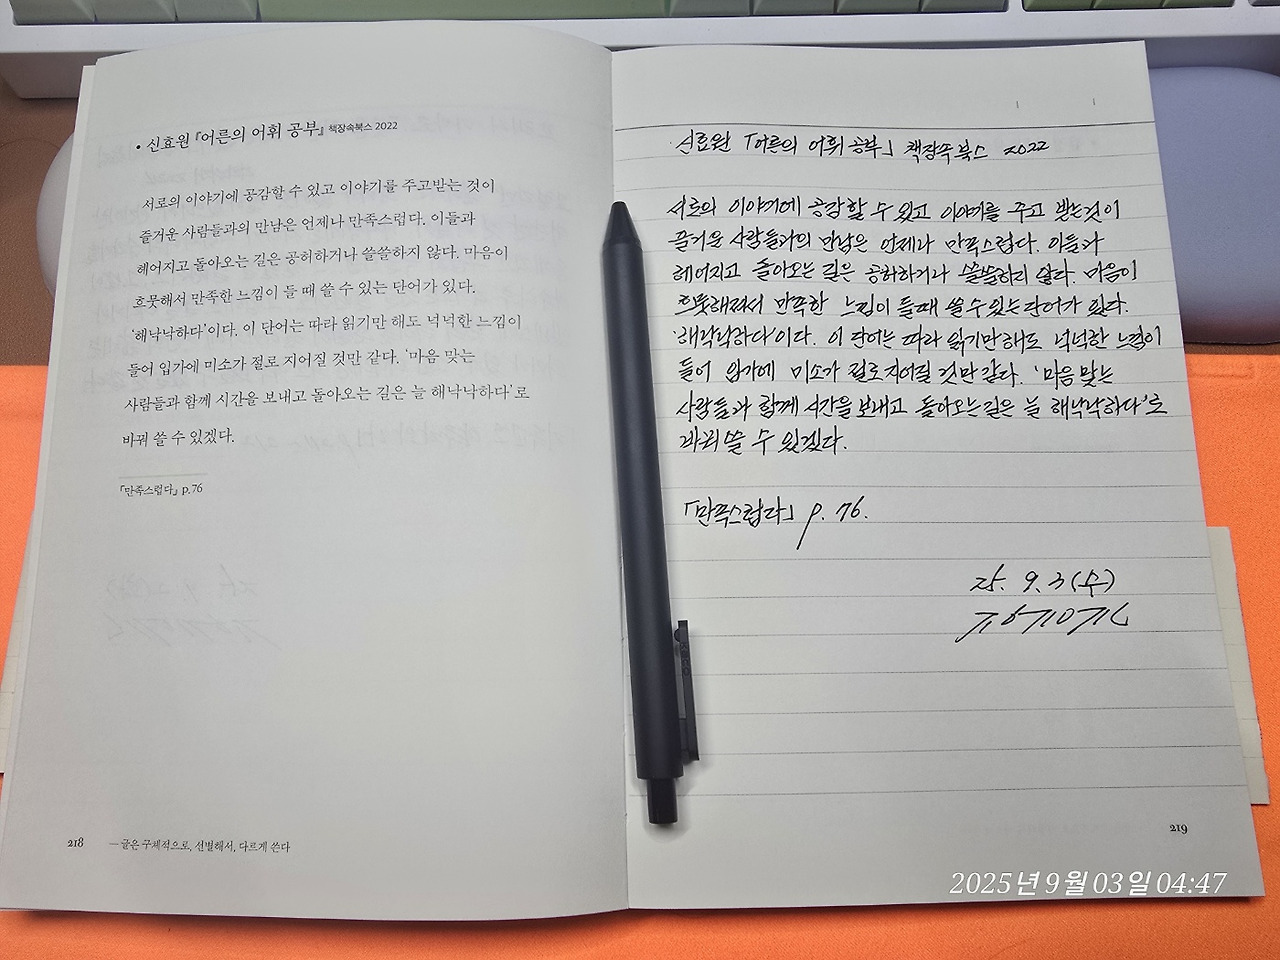 • 신효원 『어른의 어휘 공부』 책장속북스 2022
서로의 이야기에 공감할 수 있고 이야기를 주고받는 것이
즐거운 사람들과의 만남은 언제나 만족스럽다. 이들과
헤어지고 돌아오는 길은 공허하거나 쓸쓸하지 않다. 마음이
흐뭇해서 만족한 느낌이 들 때 쓸 수 있는 단어가 있다.
‘해낙낙하다’이다. 이 단어는 따라 읽기만 해도 넉넉한 느낌이
들어 입가에 미소가 절로 지어질 것만 같다. ‘마음 맞는
사람들과 함께 시간을 보내고 돌아오는 길은 늘 해낙낙하다’로
바꿔 쓸 수 있겠다.
「만족스럽다」 p.76
218 —글은 구체적으로, 선별해서, 다르게 쓴다
신효원 「어른의 어휘 공부」 책장속북스 2022
서로의 이야기에 공감할 수 있고 이야기를 주고 받는것이
즐거운 사람들과의 만남은 언제나 만족스럽다. 이들과
헤어지고 돌아오는 길은 공허하거나 쓸쓸하지 않다. 마음이
만족한 느낌이 들때 쓸 수 있는 단어가 있다.
‘해낙낙하다’이다. 이 단어는 따라 읽기만 해도 넉넉한 느낌이
들어 입가에 미소가 절로 지어질 것만 같다. ‘마음 맞는
사람들과 함께 시간을 보내고 돌아오는 길은 늘 해낙낙하다’로
바꿔 쓸 수 있겠다.
「만족스럽다」 p. 76.
25. 9. 3 (수)
219
2025년 9월 03일 04:47